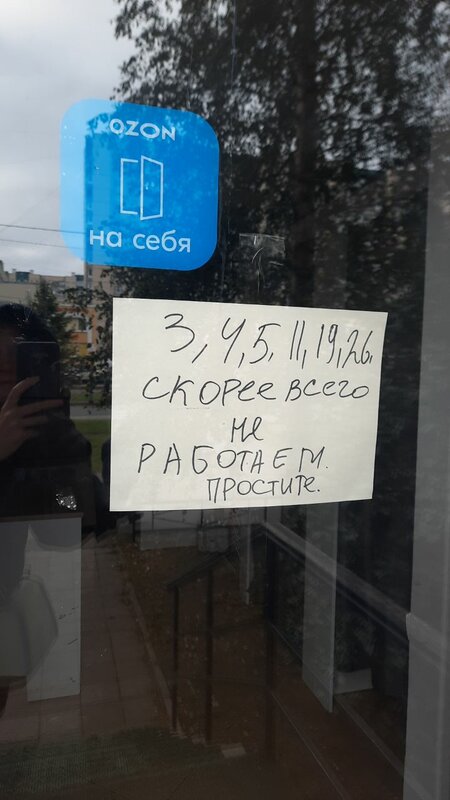 OZON
на себя
3, 4, 5, 11, 19, 26.
скорее всего
не
РАБОТАЕМ.
ПРОСТИТЕ.